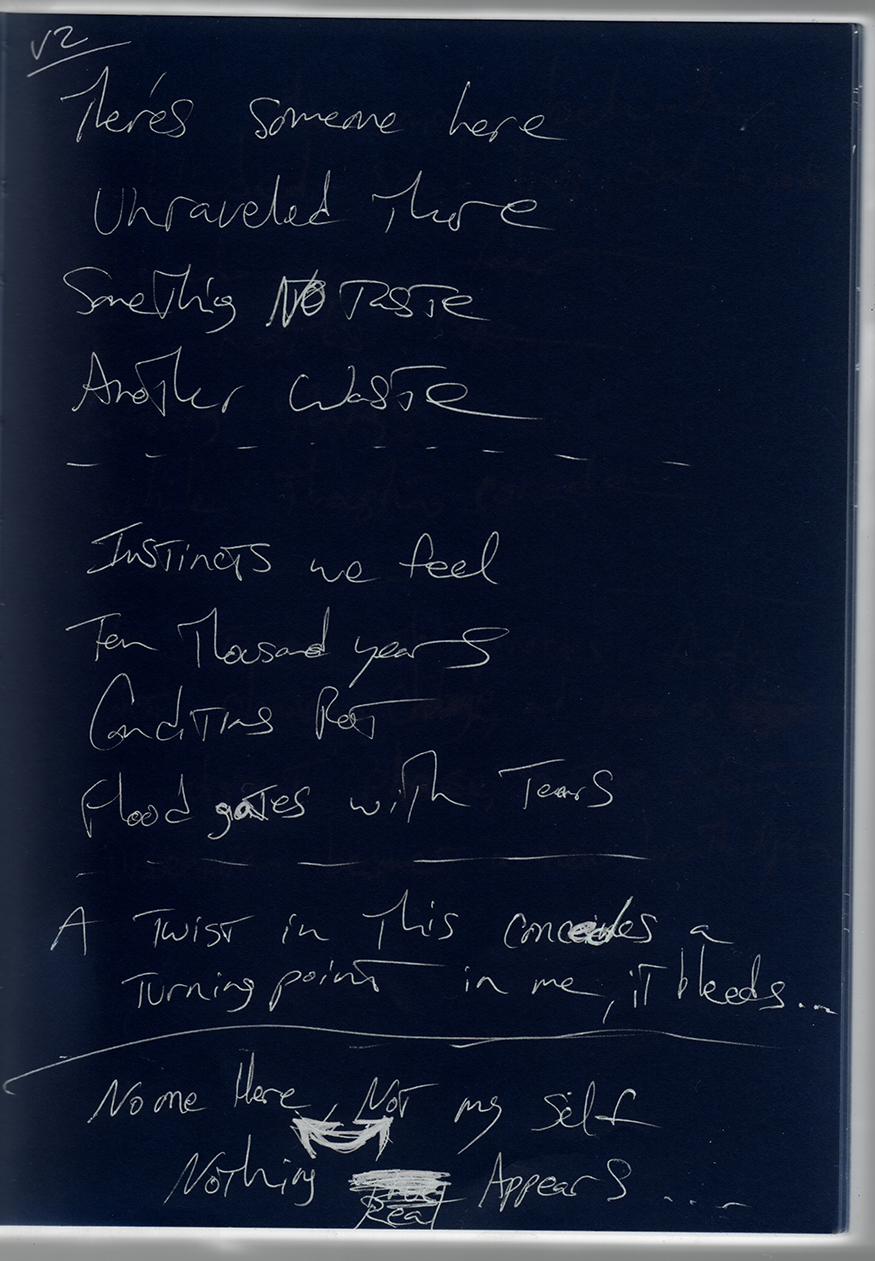 V2
There's someone here
Unraveled There
Something NO TASTE
Another Waste
Instincts we feel
Ten Thousand years
Conditions Rest
Flood gates with Tears
A Twist in This concedes a
Turning point in me, it bleeds...
No one Here, Not my Self
Nothing Appears....
Real